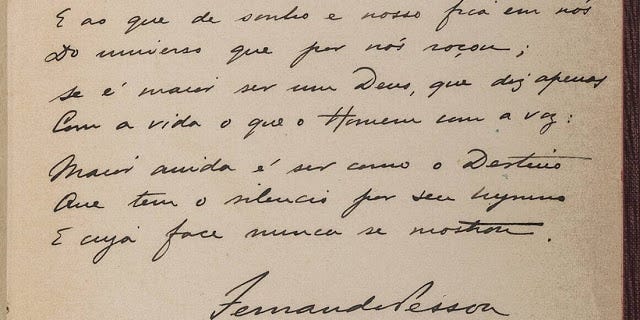 E ao que de sonho e nosso fica em nós
Do universo que por nós roçou;
Se é maior ser um Deus, que diz apenas
Com a vida o que o Homem com a voz:
Maior ainda é ser como o Destino
Que tem o silencio por seu hymno
E cuja face nunca se mostrou.
Fernando Pessoa